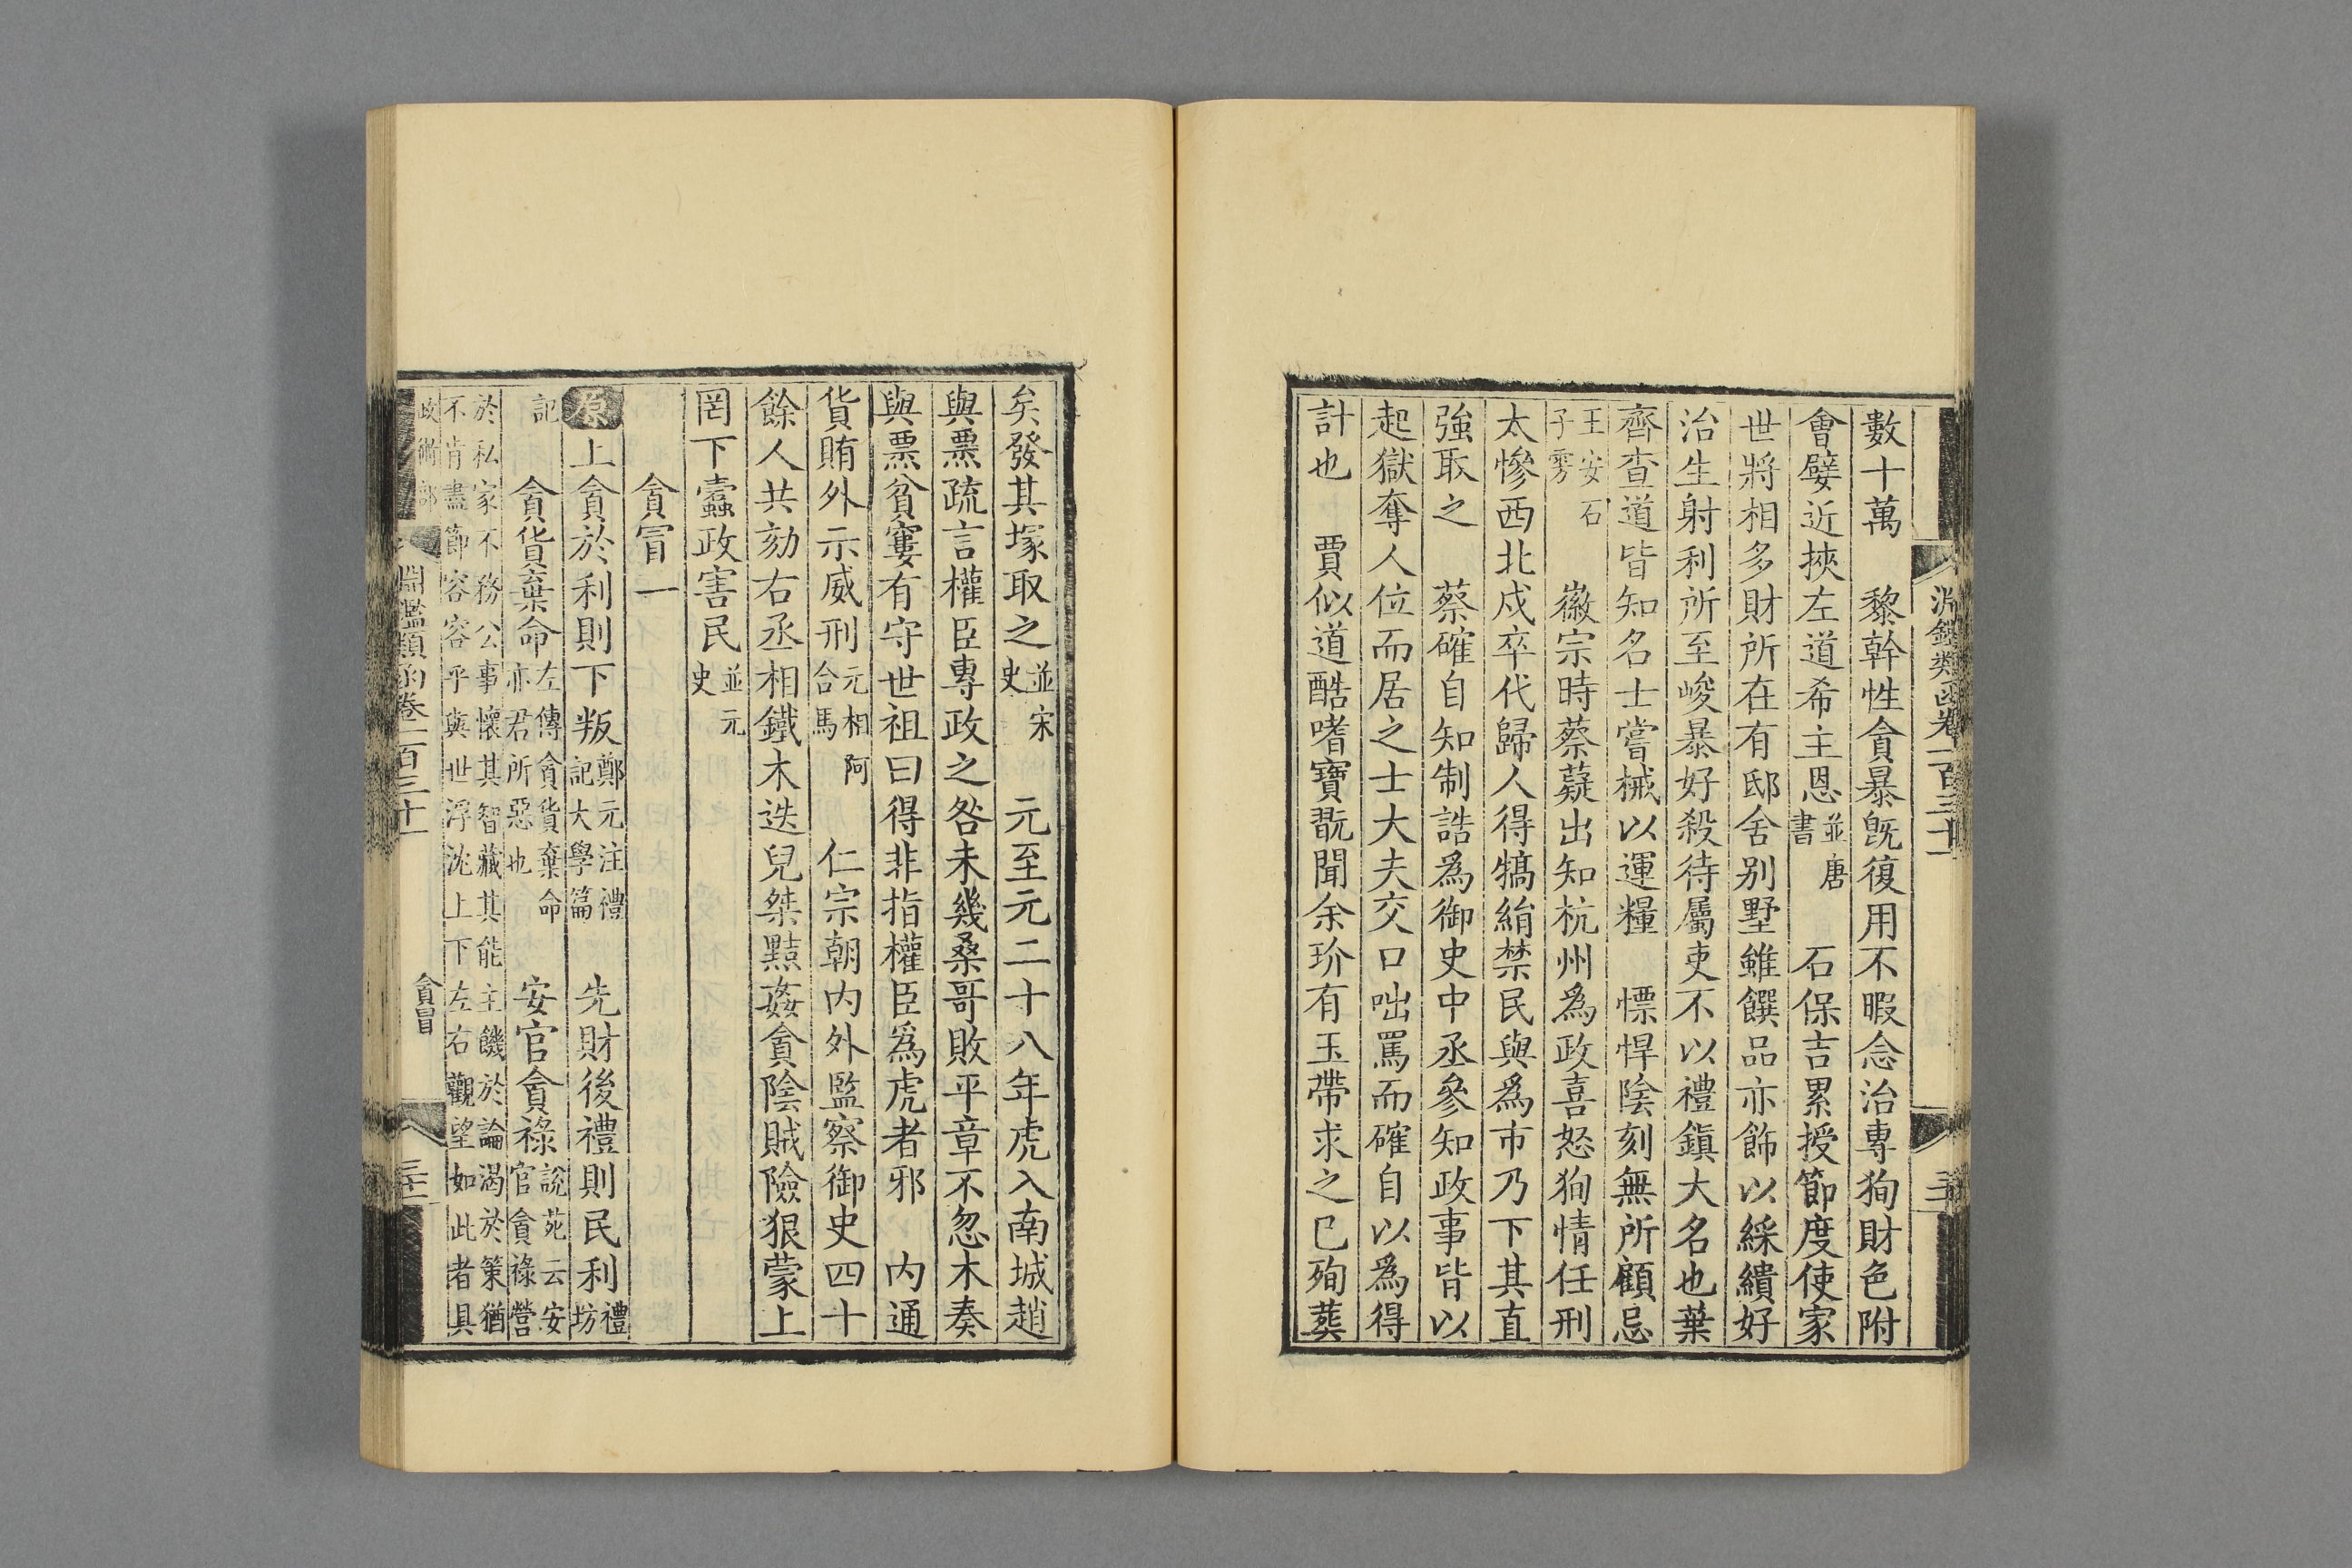 數十萬　黎幹性貪暴旣復用不暇念治專狥財色附
會嬖近挾左道希主恩並唐書　石保吉累授節度使家
世將相多財所在有邸舍别墅雖饌品亦飾以綵繢好
治生射利所至峻暴好殺待屬吏不以禮鎭大名也葉
齊查道皆知名士嘗械以運糧　慓悍隂刻無所顧忌
王安石子雱　徽宗時蔡薿出知杭州爲政喜怒狥情任刑
太慘西北戍卒代歸人得犒絹禁民與爲市乃下其直
強取之　蔡確自知制誥爲御史中丞參知政事皆以
起獄奪人位而居之士大夫交口咄罵而確自以爲得
計也　賈似道酷嗜寶翫聞余玠有玉帶求之已殉葬
矣發其塚取之並宋史　元至元二十八年虎入南城趙
與票疏言權臣專政之咎未幾桑哥敗平章不忽木奏
與票貧窶有守世祖曰得非指權臣爲虎者邪　内通
貨賄外示威刑元相阿合馬　仁宗朝内外監察御史四十
餘人共劾右丞相鐵木迭兒桀黠姦貪隂賊險狠蒙上
罔下蠹政害民並元史
貪冐一
原上貪於利則下叛鄭元注禮記大學篇　先財後禮則民利禮坊
記　貪貨棄命左傳貪貨棄命亦君所惡也　安官貪祿說苑云安官貪祿營
於私家不務公事懷其智藏其能主饑於論渴於策猶
不肯盡節容容乎與世浮沈上下左右觀望如此者具
淵鑑類函卷一百三十一
貪冐